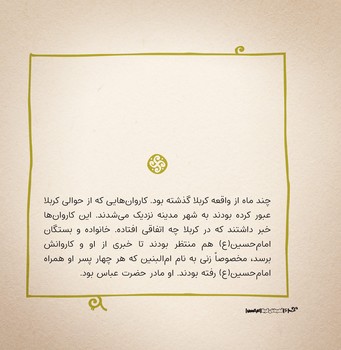 چند ماه از واقعه کربلا گذشته بود. کاروان‌هایی که از حوالی کربلا
عبور کرده بودند به شهر مدینه نزدیک می‌شدند. این کاروان‌ها
خبر داشتند که در کربلا چه اتفاقی افتاده. خانواده و بستگان
امام‌حسین(ع) هم منتظر بودند تا خبری از او و کاروانش
برسد، مخصوصاً زنی به نام ام‌البنین که هر چهار پسر او همراه
امام‌حسین(ع) رفته بودند. او مادر حضرت عباس بود.